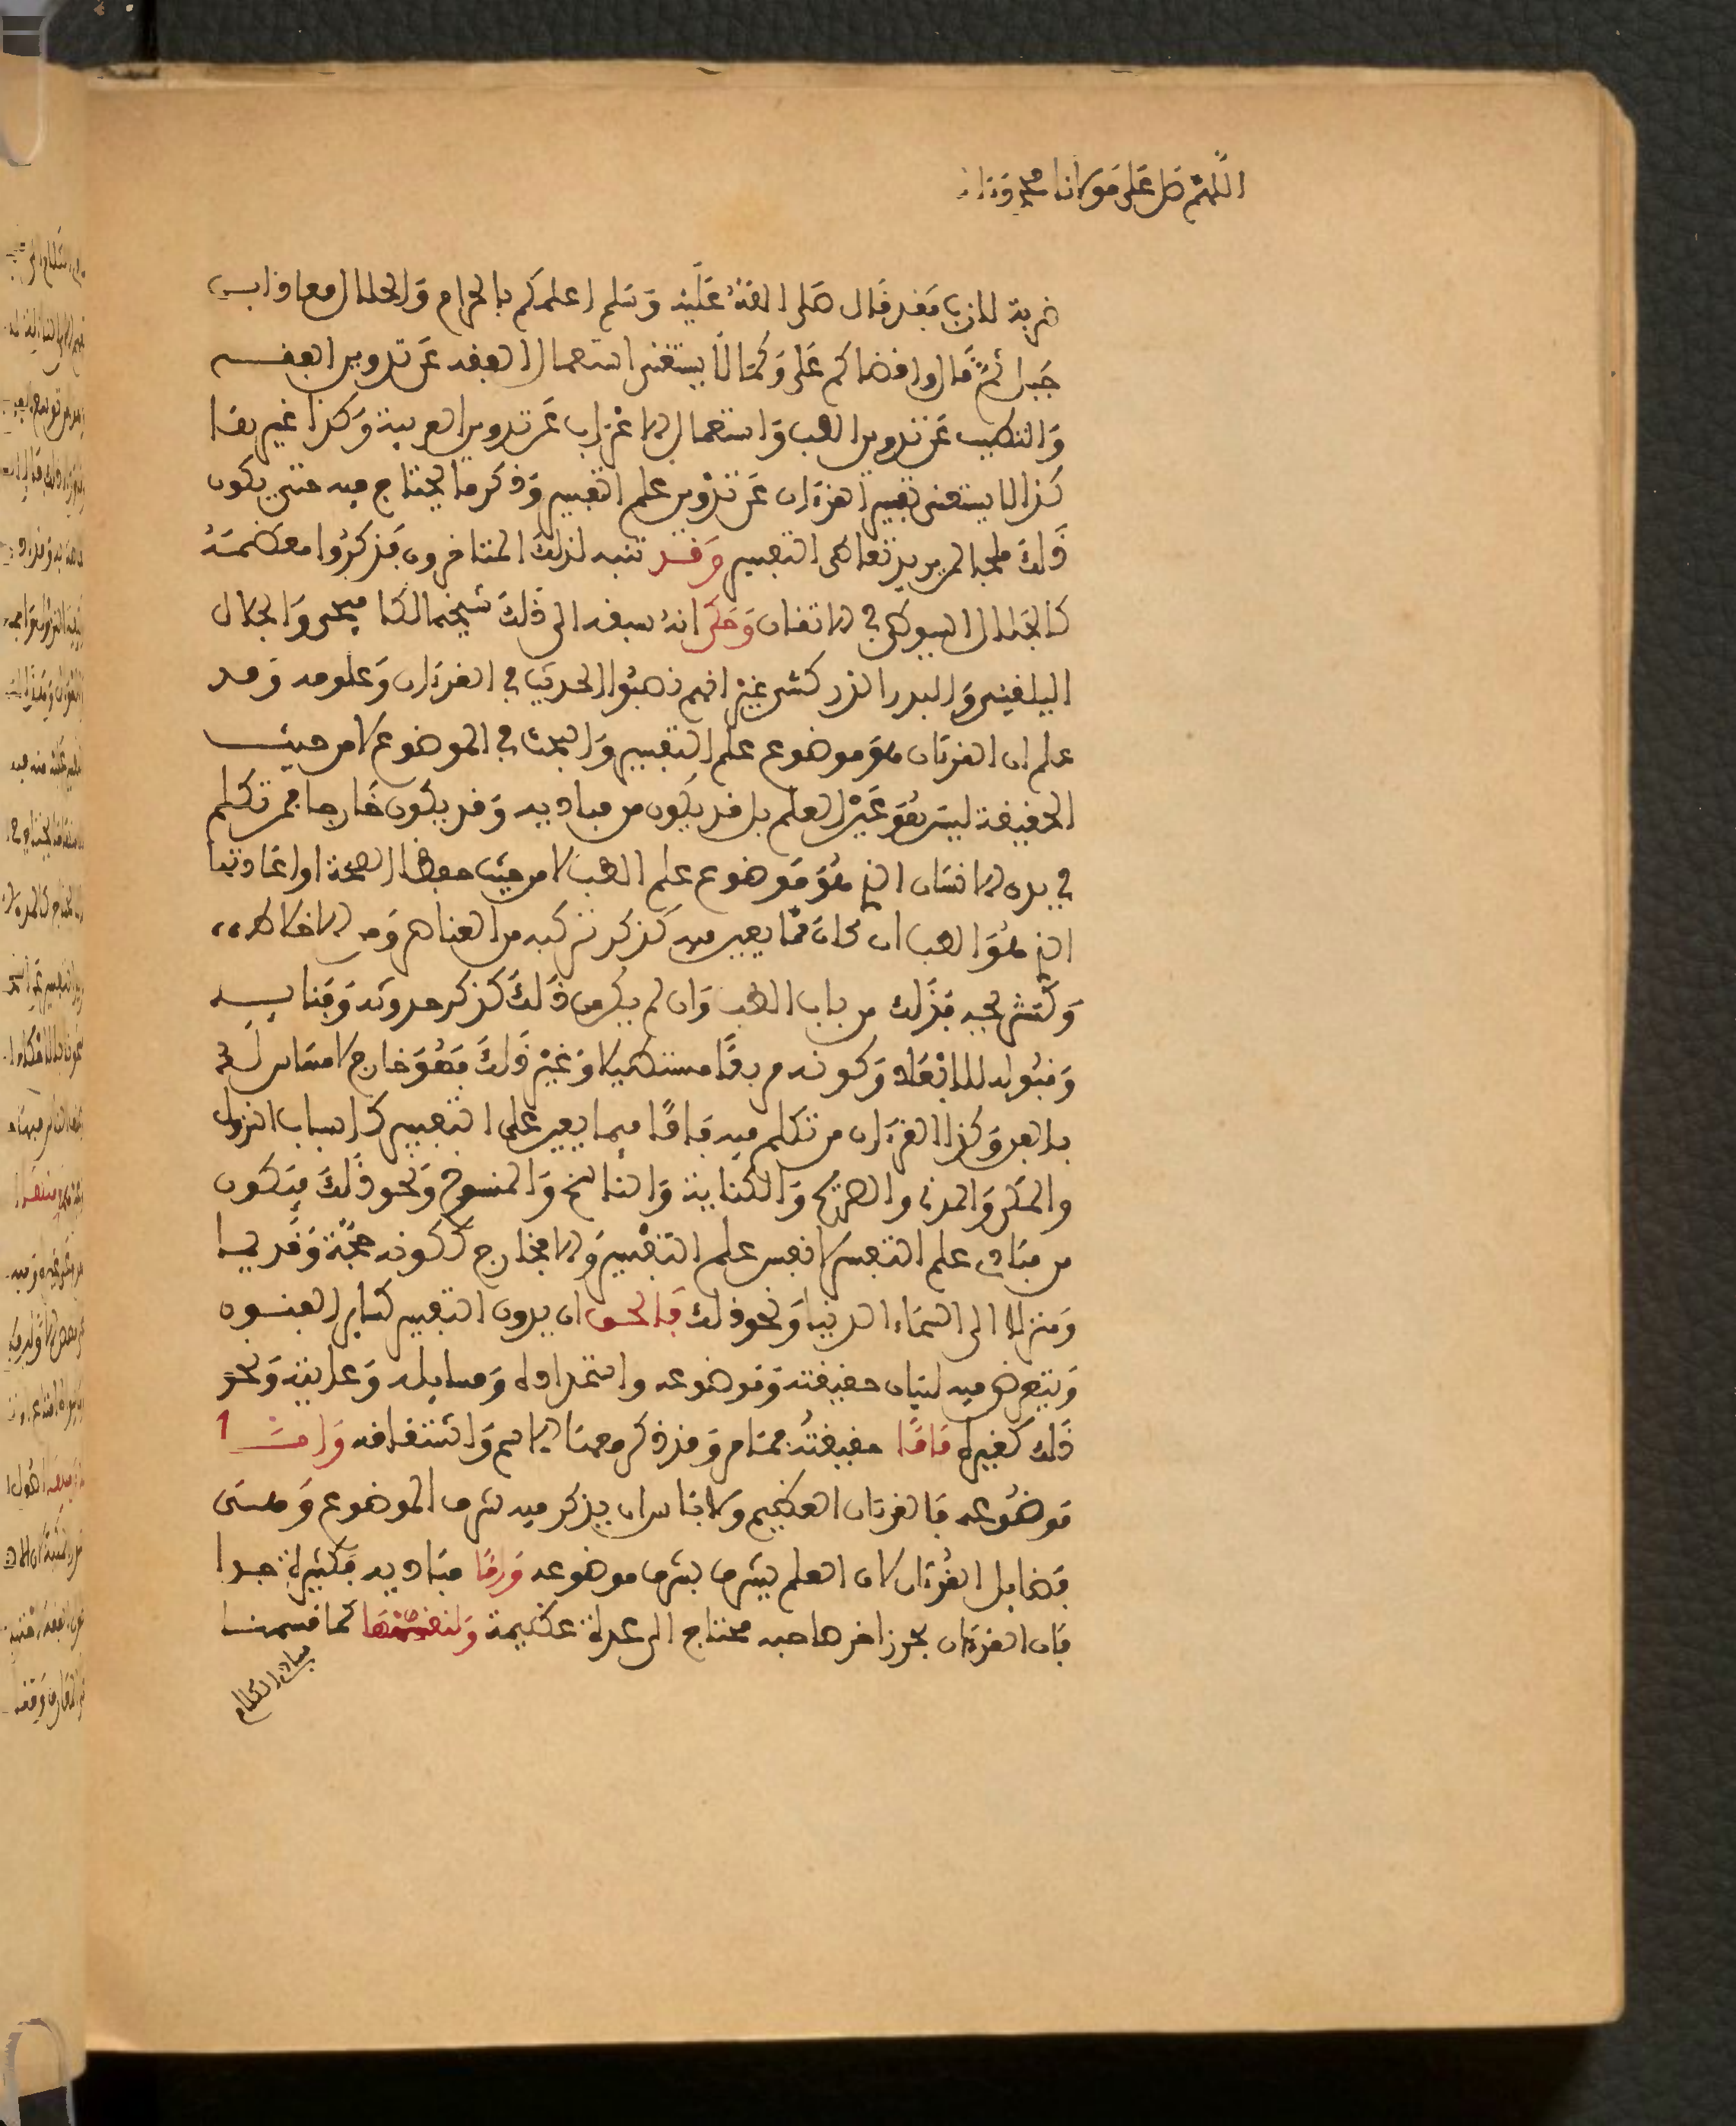 اللهم صل على مولانا محمد وءاله
ضربة لازب فقد قال صلى الله عليه وسلم اعلمكم بالحرام والحلال معاذ ابن
جبل ثم قال واقضاكم علي وكما لا يستغنى استعمال الفقه عن تدوين الفقه
والتطبب عن تدوين الطب واستعمال الاعراب عن تدوين العربية وكذا غيرها
كذا لا يستغنى تفسير القرءان عن تدوين علم التفسير وذكر ما يحتاج فيه حتى يكون
ذلك ملجا لمن يريد تعاطى التفسير وقد تنبه لذلك المتاخرون فذكروا معظمه
كالجلال السيوطي في الاتقان وحكى انه سبقه الى ذلك شيخه الكافيجي والجلال
البلقيني والبدر الزركشي غير انهم ذهبوا الحديث في القرءان وعلومه وقد
علم ان القرءان هو موضوع علم التفسير والبحث في الموضوع لا من حيث
الحقيقة ليس هو غير العلم بل قد يكون من مباديه وقد يكون خارجا فمن تكلم
في بدن الانسان الذي هو موضوع علم الطب لا من حيث حفظ الصحة او اعادتها
الذي هو الطب ان كان مما يعين فيه كذكر تركيبه من العناصر ومن الاخلاط
وكتشريحه فذلك من باب الطب وان لم يكن من ذلك كذكر حدوثه وفنايه
وقبوله للابعاد وكونه مربعا مستطيلا وغير ذلك فهو خارج لا مساس له
بالفن وكذا القرءان من تكلم فيه فاما فيما يعين على التفسير كاسباب النزول
والمكي والمدني والصريح والكناية والناسخ والمنسوخ ونحو ذلك فيكون
من مبادي علم التفسير لا نفس علم التفسير والا فخارج ككونه حجة وقديما
ومنزلا الى السماء الدنيا ونحو ذلك فالحق ان يدون التفسير كساير الفنون
ويتعرض فيه لبيان حقيقته وموضوعه واستمداده ومسايله وغايته ونحو
ذلك كغيره فاما حقيقته فما مر وقد ذكر معنا الاسم واشتقاقه واما
موضوعه فالقرءان العظيم ولا باس ان يذكر فيه شرف الموضوع وحسن
فضايل القرءان لان العلم يشرف بشرف موضوعه واما مباديه فكثيرة جدا
فان القرءان بحر زاخر صاحبه محتاج الى عدة عظيمة ولنقسمها كما قسمنا
مبادئ الكلام